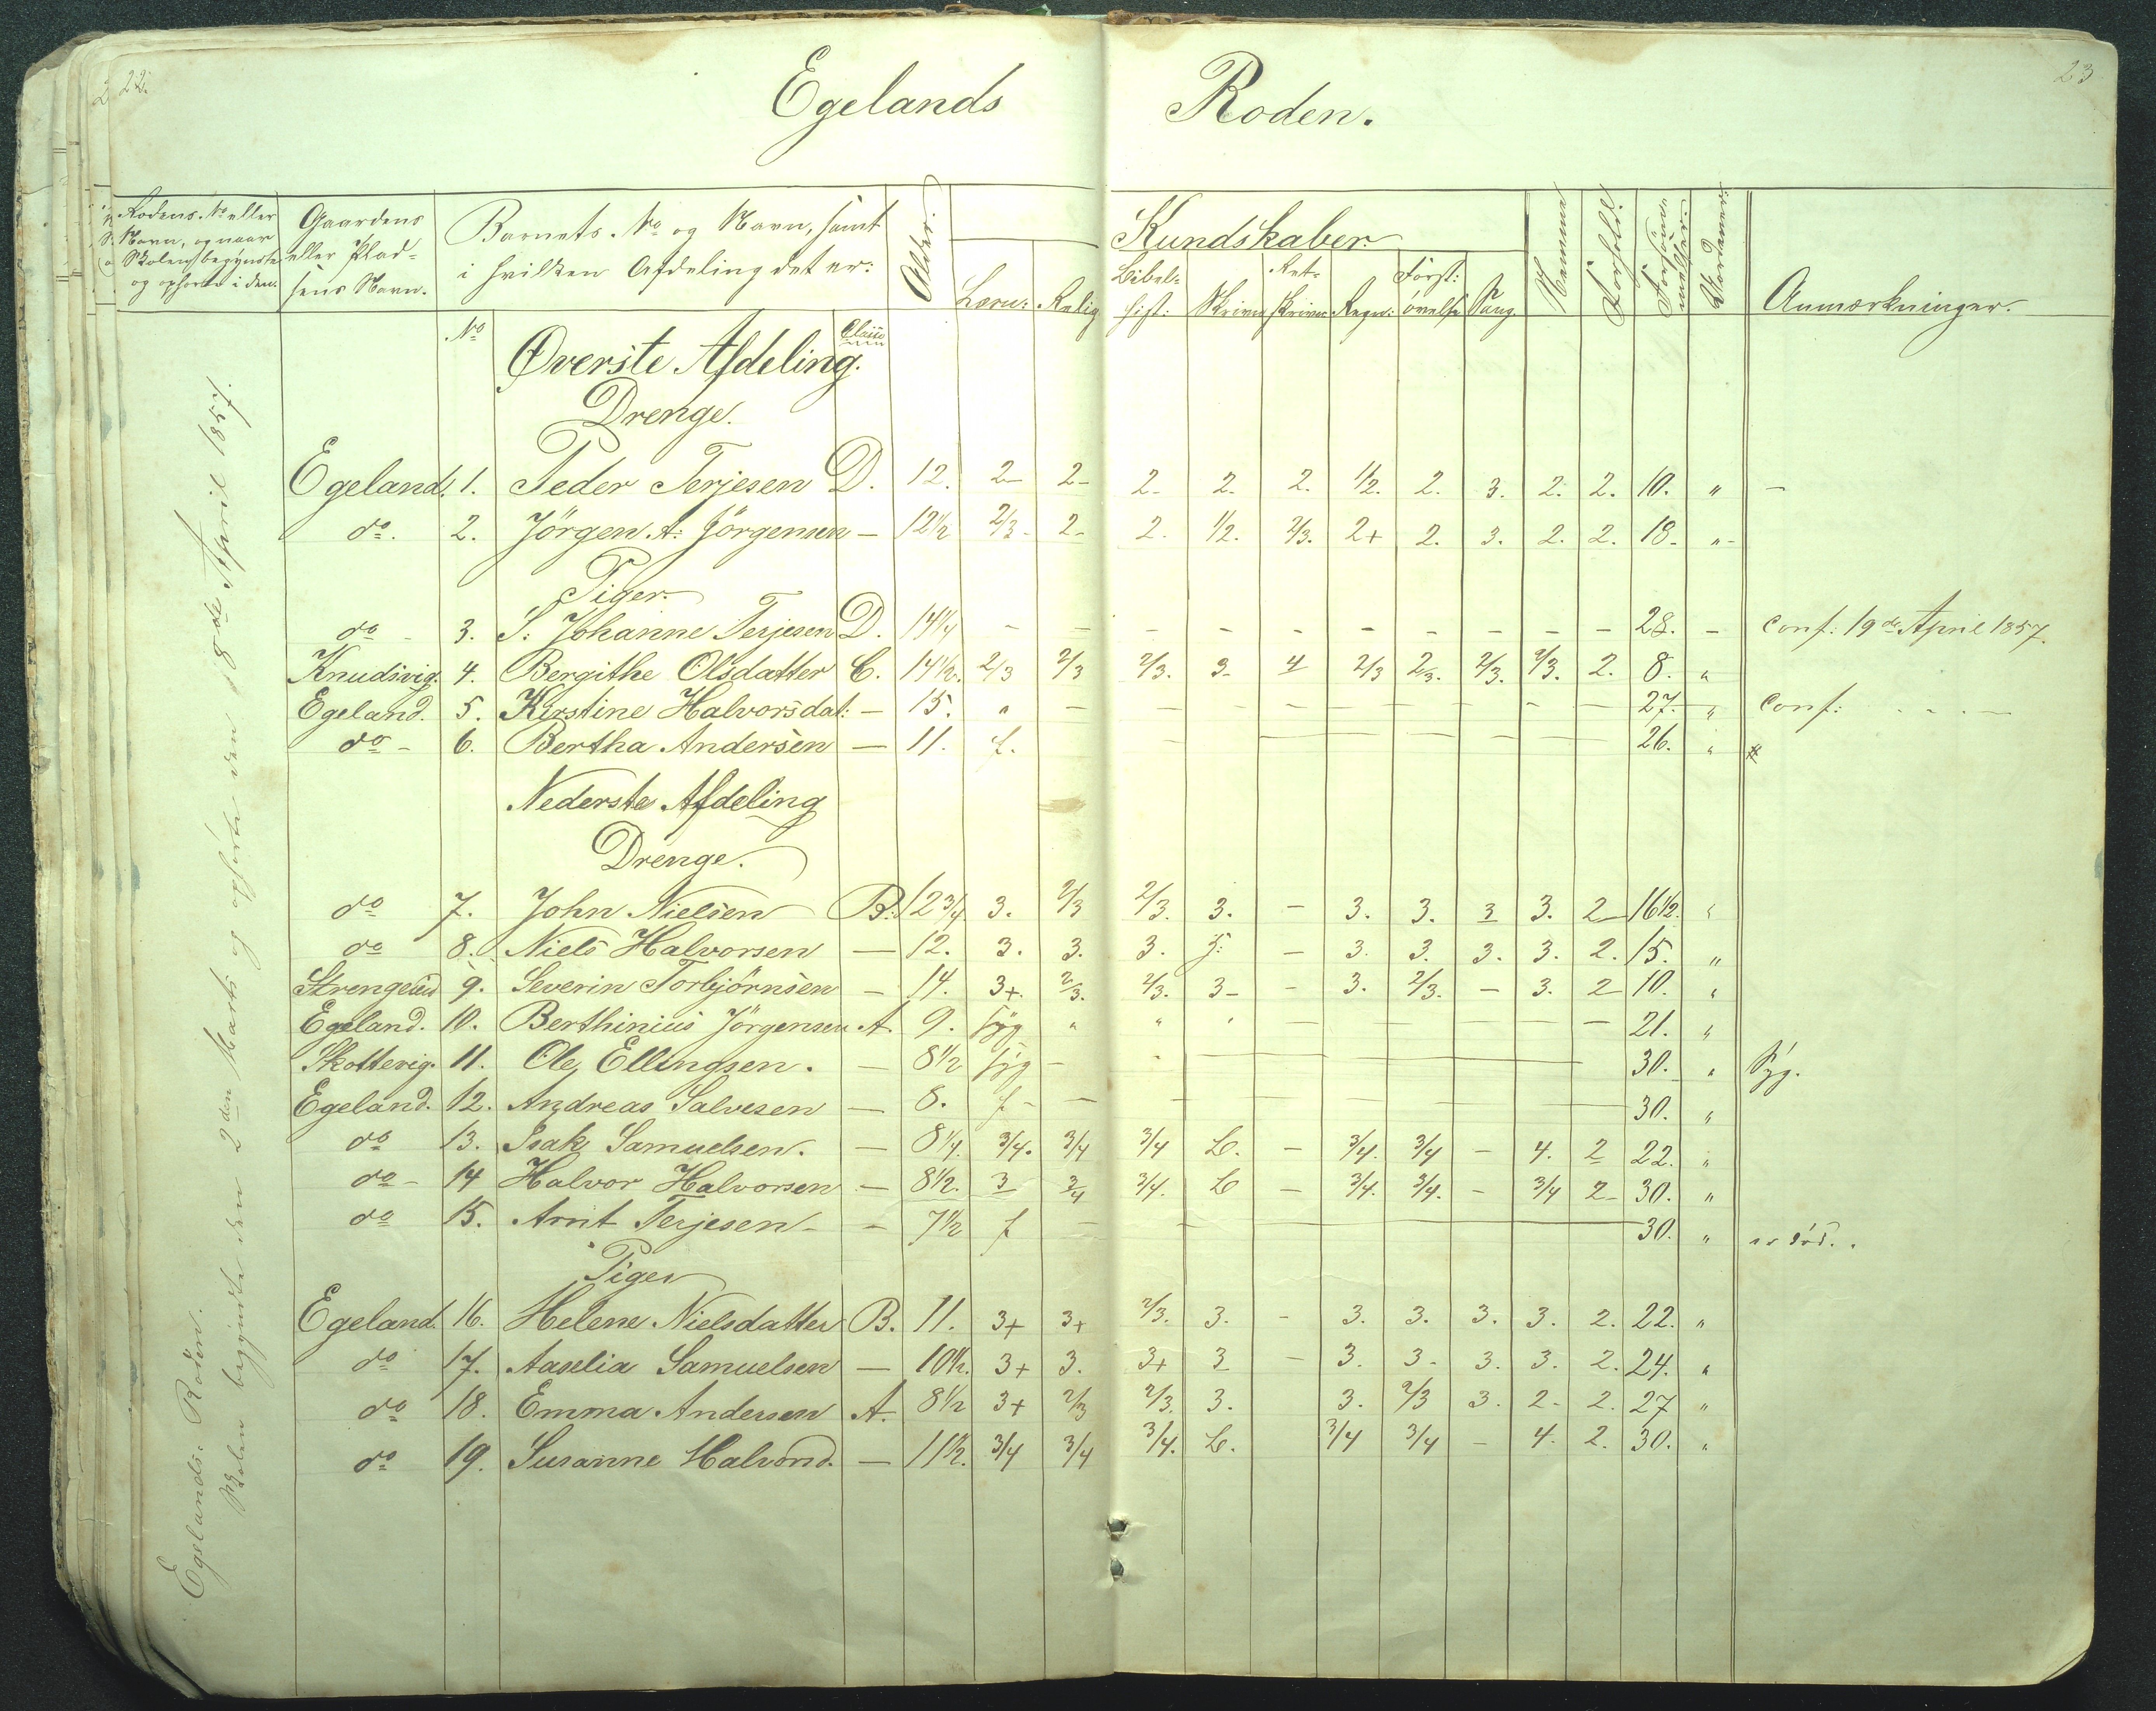 22. 23
Egelands Roden.
Rodens No eller Navn, og naar Skolen begyndte og ophørte i den.
Gaardens eller Plad- sens Navn.
Barnets No og Navn, samt i hvilken Afdeling det er:
Alder.
Kundskaber
Læsn: Relig Bibel- hist: Skrivn Ret- skrivn Regn: Forst: øvelse Sang.
Nemme Forhold. Forsømmelser. Anmærkninger.
No Øverste Afdeling. Classe
Drenge.
Egeland. 1. Peder Terjesen D. 12. 2- 2- 2- 2. 2. 1/2. 2. 3. 2. 2. 10. " -
do. 2. Jörgen A: Jörgensen - 12 1/2 2/3- 2- 2. 1/2. 2/3. 2+ 2. 3. 2. 2. 18. "-
Piger.
do - 3. S: Johanne Terjesen D. 14 1/4 - - - - - - - - - - 28. - Conf: 19de April 1857.
Knudsvig. 4. Bergithe Olsdatter C. 14 1/2. 2/3 2/3 2/3. 3- 4 2/3 2/3. 2/3. 2/3. 2. 8. "
Egeland. 5. Kirstine Halvorsdat: - 15. " - - - - - - - - - 27. " Conf: - - - -
do - 6. Bertha Andersen - 11. f. - - - - - - - - 26. "
Nederste Afdeling
Drenge.
do 7. John Nielsen B. 12 3/4 3. 2/3 2/3. 3. - 3. 3. 3 3. 2- 16 1/2. "
do 8. Niels Halvorsen - 12. 3. 3. 3. 3: - 3. 3. 3. 3. 2. 15. "
9. Severin Torbjörnsen - 14. 3+. 2/3. 2/3. 3- - 3. 2/3. - 3. 2- 10. "
Egeland. 10. Berthinius Jörgensen A. 9. syg " " " - - - - - - 21. "
Skottevig. 11. Ole Ellingsen. - 8 1/2 syg - - - 30. " Syg.
Egeland. 12. Andreas Salvesen - 8. f- - - - - - - - - 30. "
do 13. Isak Samuelsen. - 8 1/4. 3/4. 3/4 3/4 L. - 3/4. 3/4 - 4. 2 22. "
do - 14 Halvor Halvorsen - 8 1/2. 3 3/4 3/4. L - 3/4. 3/4. - 3/4 2- 30. "
do 15. Arnt Terjesen - - 7 1/2 f - - - 30. " er död.
Piger
Egeland. 16. Helene Nielsdatter B. 11. 3+ 3+ 2/3. 3. - 3. 3. 3. 3. 2. 22. "
do 17. Aaselia Samuelsen - 10 1/2. 3+ 3. 3+ 3 - 3. 3- 3. 3. 2. 24. "
do 18. Emma Andersen A. 8 1/2 3+ 2/3 2/3. 3. 3. 2/3 3. 2- 2. 27 "
do 19. Susanne Halvorsd. - 11 1/2. 3/4 3/4 3/4. L. 3/4 3/4 - 4. 2. 30. "
Egelands. Roden.
Skolen begyndte den 2den Marts og ophörte den 8de April 1857.